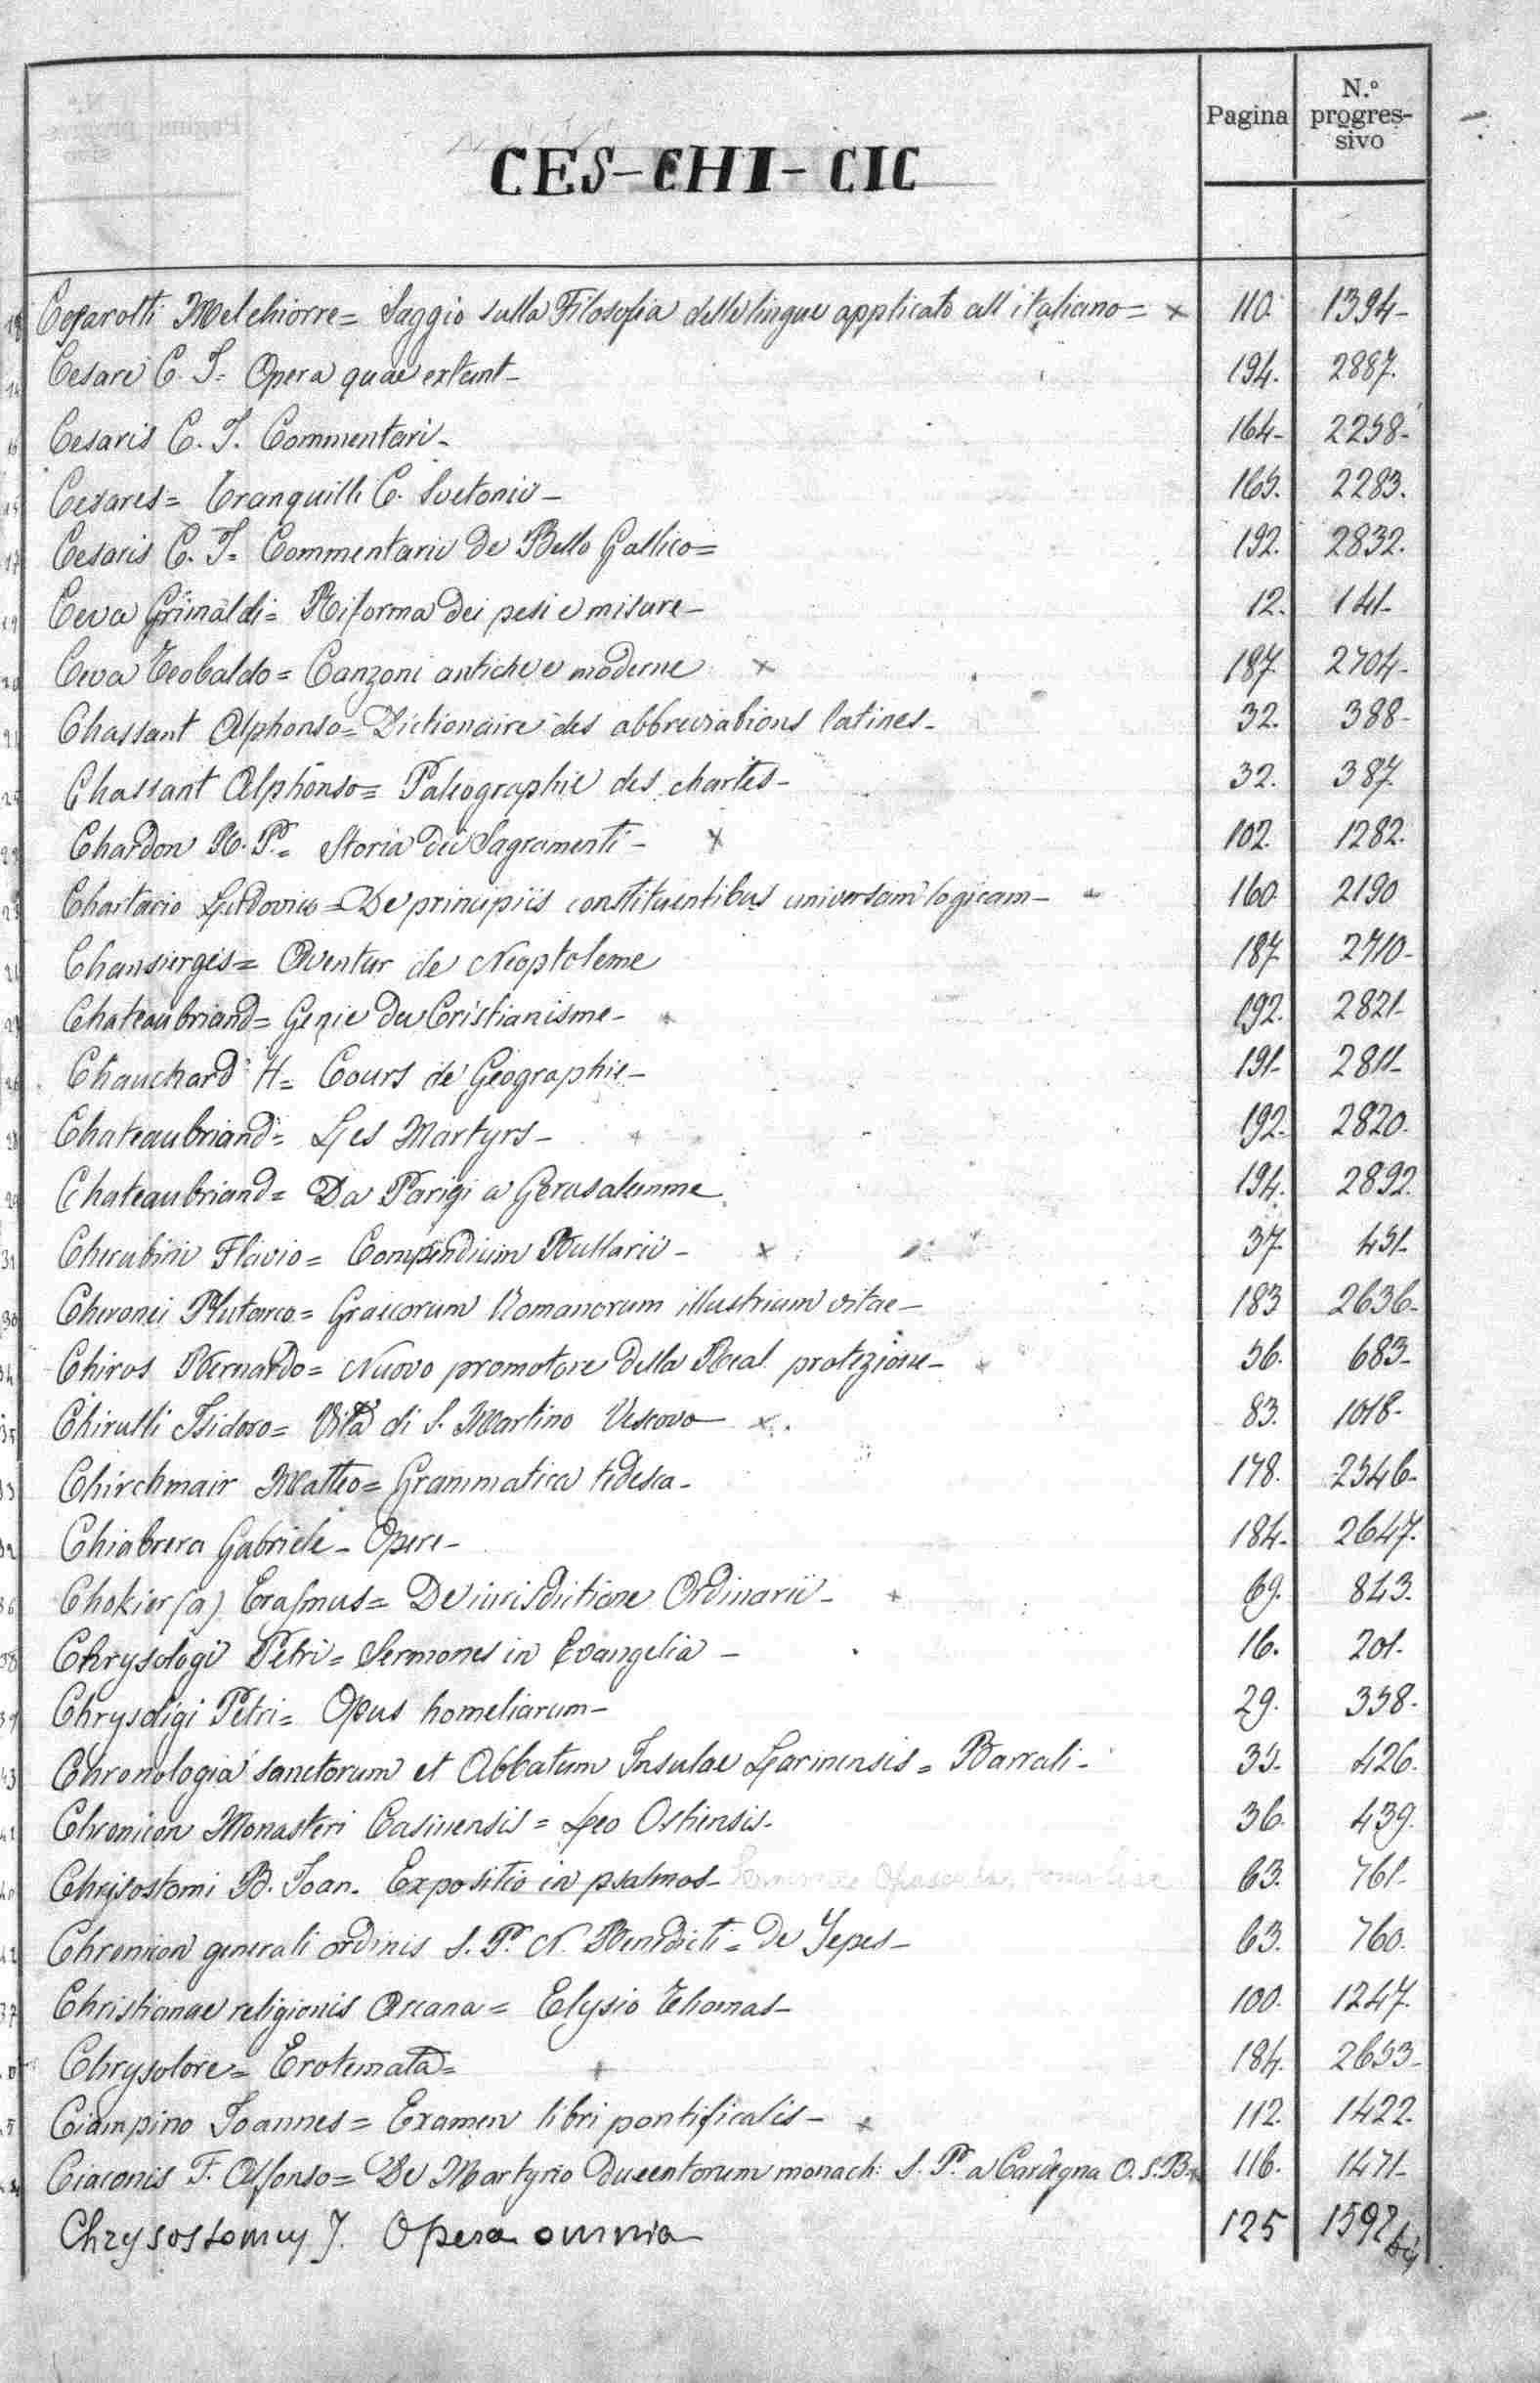 Pagina N.º progres-sivo
CES-CHI-CIC
Cesarotti Melchiorre= Saggio sulla Filosofia delle lingue applicato all'italiano= x 110. 1394-
Cesare C. J= Opera quae extant- 194. 2887.
Cesaris C. J. Commentari- 164- 2258-
Cesares= Tranquilli C. Svetonio- 165. 2283.
Cesaris C. J= Commentarii de Bello Gallico= 192. 2832.
Ceva Grimaldi= Riforma dei pesi e misure- 12. 141-
Ceva Teobaldo= Canzoni antiche e moderne x 187. 2704-
Chassant Alphonso= Dictionaire des abbreviations latines- 32. 388-
Chassant Alphonso= Paleographie des chartes- 32. 387.
Chardon R. P.= Storia dei Sagramenti- x 102. 1282.
Chartario Ludovico= De principiis constituentibus universam logicam- 160. 2190
Chansierges= Aventur de Neoptoleme 187 2710-
Chateaubriand= Genie du Cristianisme- 192. 2821-
Chauchard H= Cours de Géographie- 191- 2811-
Chateaubriand= Les Martyrs- 192. 2820.
Chateaubriand= Da Parigi a Gerusalemme 194. 2892.
Cherubini Flavio= Compendium Bullarii- x 37. 451-
Cheronei Plutarco= Graecorum Romanorum illustrium vitae- 183 2636-
Chiros Bernardo= Nuovo promotore della Real protezione- 56. 683-
Chirulli Isidoro= Vita di S. Martino Vescovo- x 83. 1018-
Chirchmair Matteo= Grammatica tedesca- 178. 2546-
Chiabrera Gabriele- Opere- 184- 2647.
Chokier (a) Erasmus= De iurisdictione Ordinarii- + 69. 843-
Chrysologi Petri= Sermones in Evangelia- 16. 201-
Chrysoligi Petri= Opus homeliarum- 29. 358-
Chronologia sanctorum et Abbatum Insulae Larinensis= Barrali- 35- 426.
Chronicon Monasteri Casinensis= Leo Ostiensis- 36. 439.
Chrijsostomi B. Joan. Expositio in psalmos- 63. 761-
Chronicon generali ordinis S. P. N. Benedicti= De Yepes- 63. 760.
Christianae religionis Arcana= Elysio Thomas- 100. 1247.
Chrysolore= Erotemata= + 184. 2653-
Ciampino Joannes= Examen libri pontificalis- x 112. 1422-
Ciaconis F. Alfonso= De Martyrio ducentorum monach: S. P. a Cardegna O. S. B- 116. 1471-
Chrysostomus J. Opera omnia 125 1592 bis